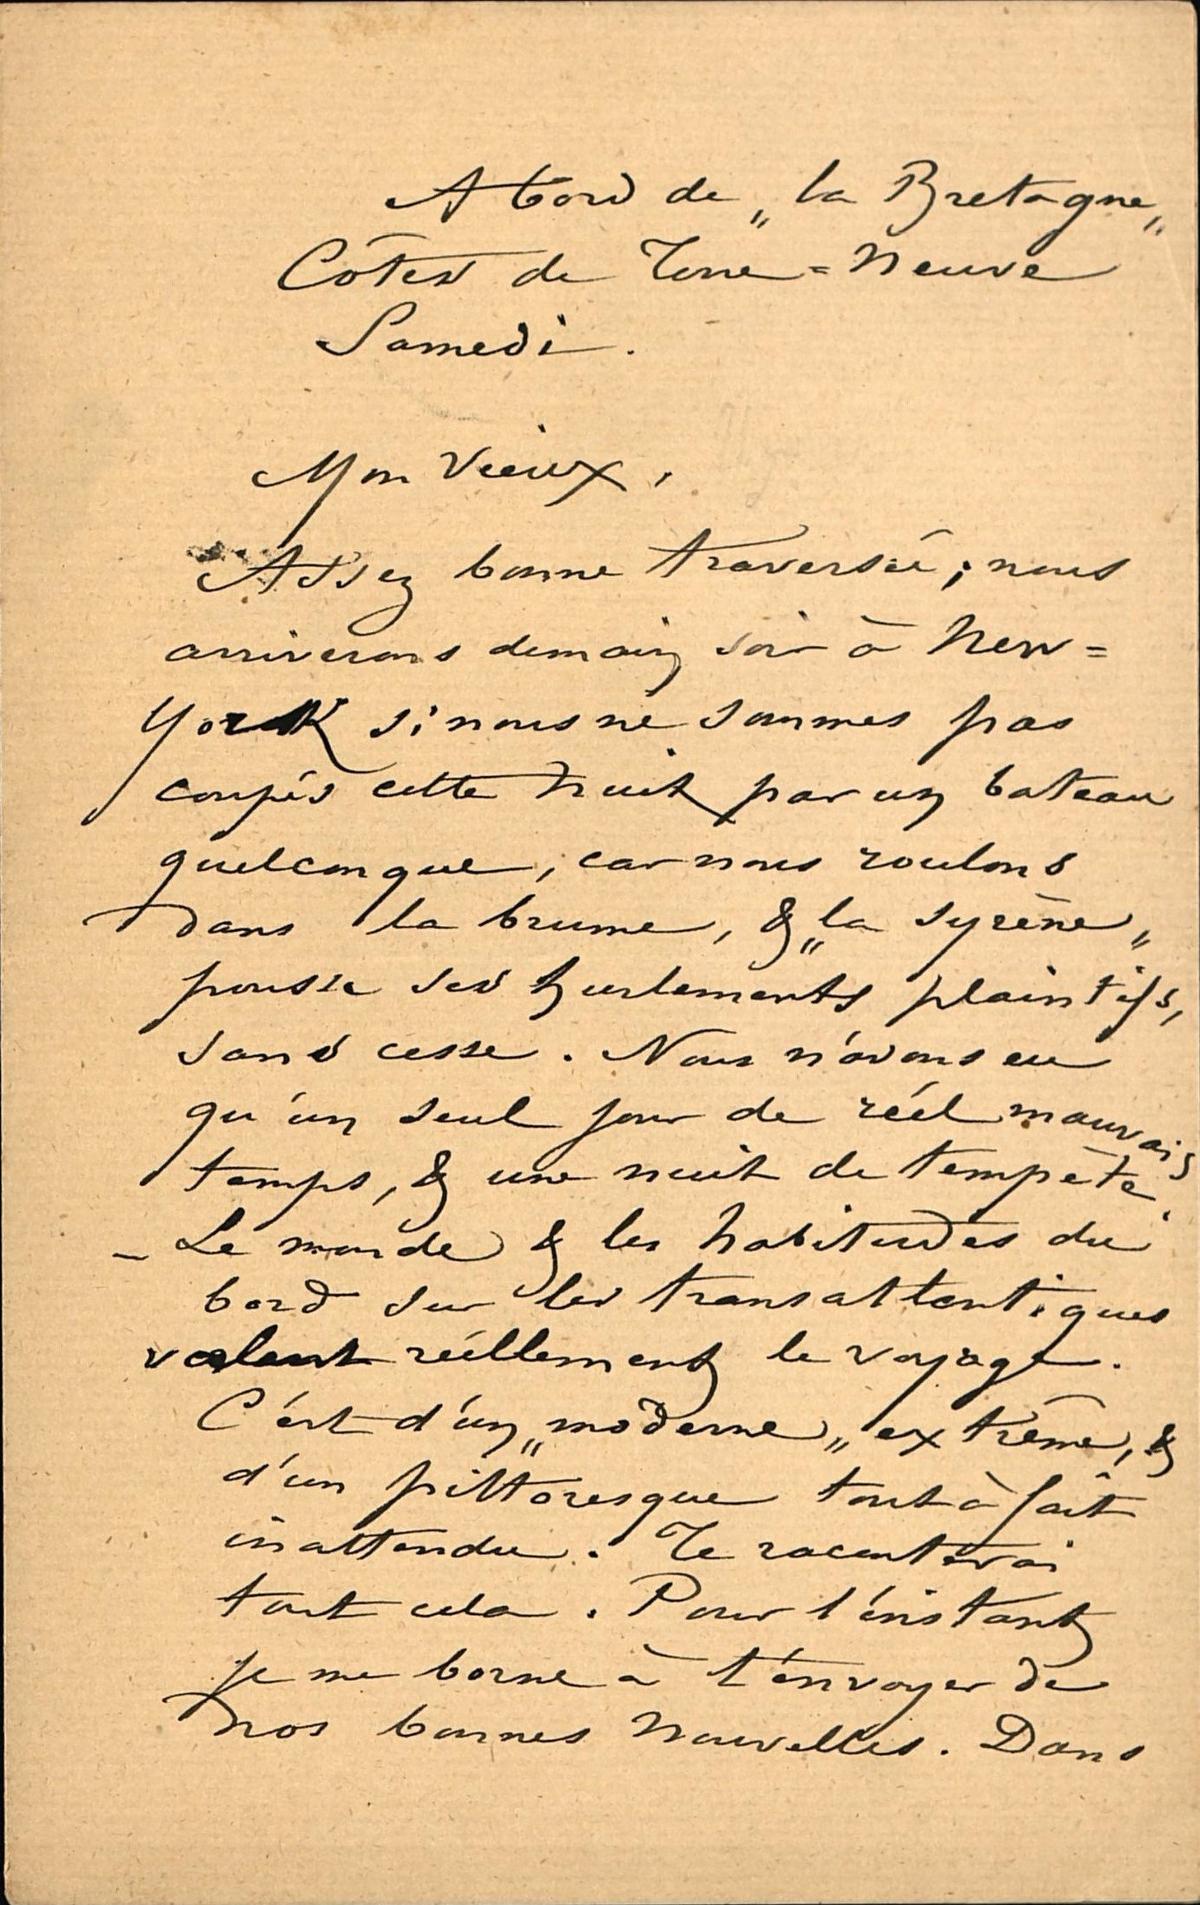 A bord de „la Bretagne„
Côtes de Terre=Neuve
Samedi.
Mon Vieux,
Assez bonne traversée ; nous
arriverons demain soir à New=
York si nous ne sommes pas
coupés cette nuit par un bateau
quelconque, car nous roulons
dans la brume, & „la syrène„
pousse ses hurlements plaintifs,
sans cesse. Nous n'avons eu
qu'un seul jour de réel mauvais
temps, & une nuit de tempête.
– Le monde & les habitudes du
bord sur les transatlantiques
valent réellement le voyage.
C'est d'un „moderne„ extrême, &
d'un pittoresque tout à fait
inattendu. Te raconterai
tout cela. Pour l'instant
je me borne à t'envoyer de
nos bonnes nouvelles. Dans